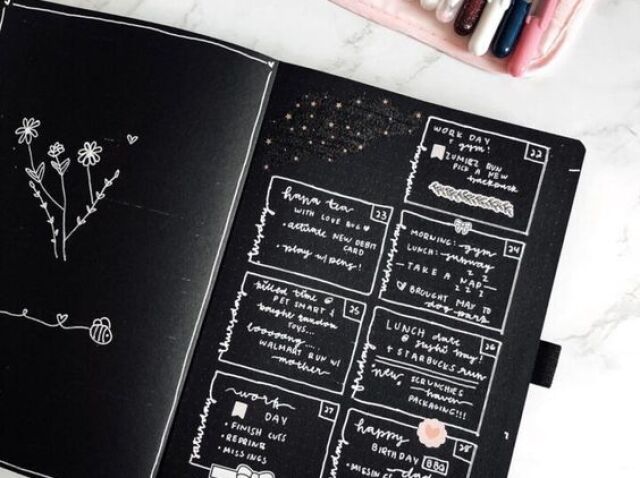 monday
22
WORK DAY
+ gym!
ZUMIEZ RUN
PICK A NEW
backpack
tuesday
23
hapa tea
WITH LOVE BUG
• activate NEW DEBIT
CARD
• play w/ pens!
wednesday
24
MORNING: gym
LUNCH: subway
z z z
— TAKE A NAP —
z z z
BROUGHT MAY TO
dog park
thursday
25
killed time @
PET SMART &
bought random
TOYS...
looooong ....
WALMART RUN W/
mother
friday
26
LUNCH date
@ sushi way!
+ STARBUCKS run
"new" SCRUNCHIES
haven
PACKAGING!!!
saturday
27
work
DAY
• FINISH CUTS
• REPRINT
• MISSINGS
28
happy
BIRTHDAY
dad
BBQ